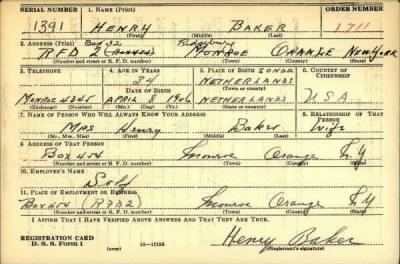 SERIAL NUMBER 1. NAME (Print) ORDER NUMBER
1391 HENRY BAKER 1711
2. ADDRESS (Print) Box 32 Ridgebury
RFD 2 MONROE ORANGE NEW YORK
(Number and street or R. F. D. number) (Town) (County) (State)
3. TELEPHONE 4. AGE IN YEARS 5. PLACE OF BIRTH 6. COUNTRY OF CITIZENSHIP
34 NETHERLANDS
DATE OF BIRTH (Town or county)
MONROE 4345 APRIL 1906 NETHERLANDS U S A
(Exchange) (Number) (Mo.) (Day) (Yr.) (State or country)
7. NAME OF PERSON WHO WILL ALWAYS KNOW YOUR ADDRESS 8. RELATIONSHIP OF THAT PERSON
Mrs Henry Baker Wife
(Mr., Mrs., Miss) (First) (Middle) (Last)
9. ADDRESS OF THAT PERSON
Box 404 Monroe Orange N.Y
(Number and street or R. F. D. number) (Town) (County) (State)
10. EMPLOYER'S NAME
Self
11. PLACE OF EMPLOYMENT OR BUSINESS
Box 404 (RFD2) Monroe Orange N.Y
(Number and street or R. F. D. number) (Town) (County) (State)
I AFFIRM THAT I HAVE VERIFIED ABOVE ANSWERS AND THAT THEY ARE TRUE.
REGISTRATION CARD
D. S. S. Form 1 (over) 16—17105 Henry Baker
(Registrant's signature)